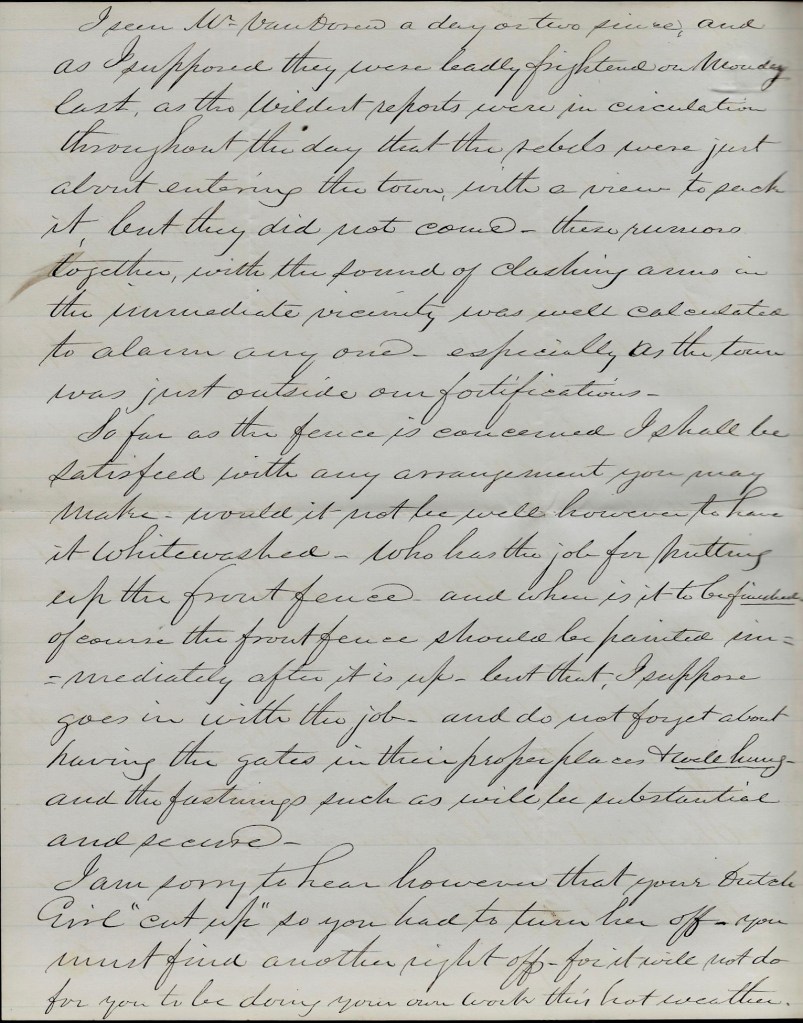 I seen Mr Van Doren a day or two since, and
as I supposed they were badly frightend on Monday
last, as the Wildest reports were in circulation
throughout the day that the rebels were just
about entering the town, with a view to sack
it, but they did not come - these rumors
together, with the sound of clashing arms in
the immediate vicinity was well calculated
to alarm any one - especially as the town
was just outside our fortifications -
So far as the fence is concerned I shall be
satisfeed with any arrangement you may
make - would it not be well however to have
it Whitewashed - Who has the job for putting
up the front fence - and when is it to be finished
of course the front fence should be painted im=
=mediately after it is up - but that, I suppose
goes in with the job - and do not forget about
having the gates in their proper places & well hung -
and the fastnings such as will be substantial
and secure -
I am sorry to hear however that your Dutch
Girl "cut up" so you had to turn her off - you
must find another right off - for it will not do
for you to be doing your own work this hot weather.